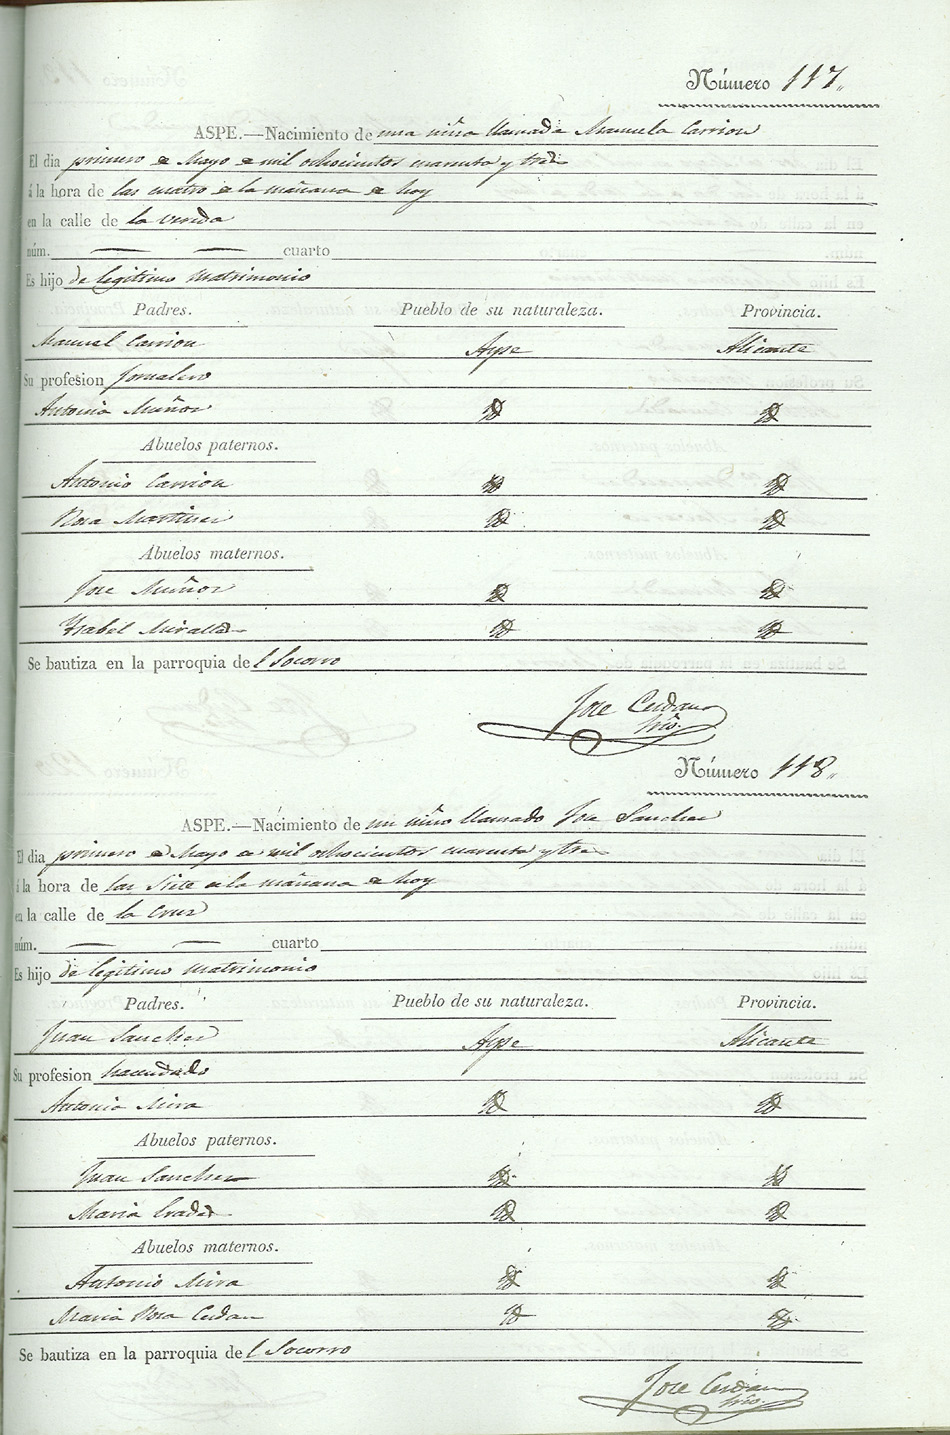 Número 117.
ASPE.—Nacimiento de una niña llamada Manuela Carrion
El dia primero de Mayo de mil ochocientos cuarenta y tres
á la hora de las cuatro de la mañana de hoy
en la calle de la vereda
núm. — — cuarto
Es hijo de legitimo matrimonio
Padres. Pueblo de su naturaleza. Provincia.
Manuel Carrion Aspe Alicante
Su profesion Jornalero
Antonia Muñoz
Abuelos paternos.
Antonio Carrion
Rosa Martinez
Abuelos maternos.
Jose Muñoz
Ysabel Miralles
Se bautiza en la parroquia del Socorro
Jose Cerdan
Srio.
Número 118.
ASPE.—Nacimiento de un niño llamado Jose Sanchez
El dia primero de Mayo de mil ochocientos cuarenta y tres
á la hora de las Siete de la mañana de hoy
en la calle de la Cruz
núm. — — cuarto
Es hijo de legitimo matrimonio
Padres. Pueblo de su naturaleza. Provincia.
Juan Sanchez Aspe Alicante
Su profesion hacendado
Antonia Mira
Abuelos paternos.
Juan Sanchez
Maria
Abuelos maternos.
Antonio Mira
Maria Rosa Cerdan
Se bautiza en la parroquia del Socorro
Jose Cerdan
Srio.